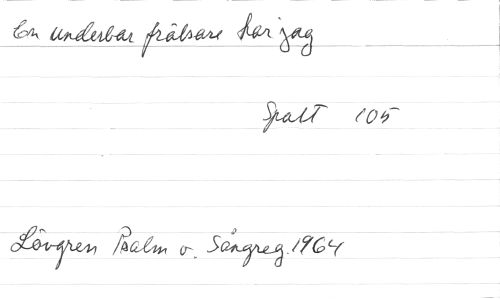 En underbar frälsare har jag
Spalt 105
Lövgren Psalm o. Sångreg. 1964